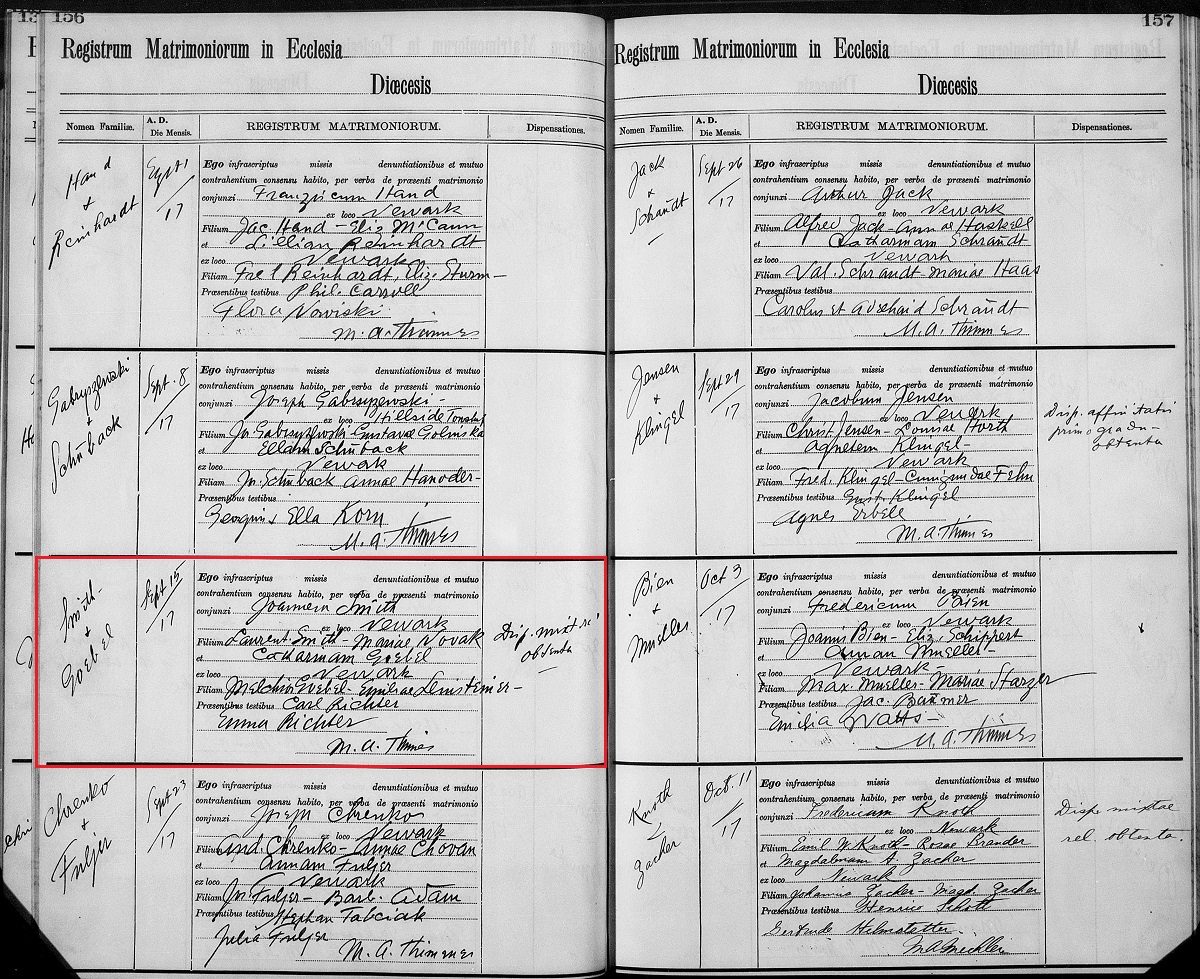 156
Registrum Matrimoniorum in Ecclesia
Diœcesis
Nomen Familiæ.
A. D.
Die Mensis.
REGISTRUM MATRIMONIORUM.
Dispensationes.
Hand
+
Reinhardt
Sept 1
17
Ego infrascriptus missis denuntiationibus et mutuo
contrahentium consensu habito, per verba de præsenti matrimonio
conjunxi Franziscum Hand
ex loco Newark
Filium Jac Hand - Eliz McCann
et Lillian Reinhardt
ex loco Newark
Filiam Fred Reinhardt, Eliz. Sturm -
Præsentibus testibus Phil. Carroll
Flora Nowiski
M. A. Thimmes
Gabryszewski
+
Schüback
Sept. 8
17
Ego infrascriptus missis denuntiationibus et mutuo
contrahentium consensu habito, per verba de præsenti matrimonio
conjunxi Joseph Gabryszewski -
ex loco Hillside
Filium Jos Gabryszewski - Gustava
et Ellam Schüback
ex loco Newark
Filiam Jn. Schüback Annae Hanoder -
Præsentibus testibus
Georgius + Ella Korn
M. A. Thimmes
Smith -
+
Goebel
Sept 15
17
Ego infrascriptus missis denuntiationibus et mutuo
contrahentium consensu habito, per verba de præsenti matrimonio
conjunxi Joannem Smith
ex loco Newark
Filium Laurent. Smith - Mariae Novak
et Catharinam Goebel
ex loco Newark
Filiam Melchior Goebel - Emiliae
Præsentibus testibus Carl Richter
Emma Richter
M. A. Thimes
Disp. mixt re
obtenta
Chrenko
+
Fuljer
Sept 23
17
Ego infrascriptus missis denuntiationibus et mutuo
contrahentium consensu habito, per verba de præsenti matrimonio
conjunxi Joseph Chrenko
ex loco Newark
Filium And Chrenko - Annae Chovan
et Annam Fuljer
ex loco Newark
Filiam Jos Fuljer - Barb. Adam
Præsentibus testibus Stephan Tabciak
Julia Fuljer
M. A. Thimmes
157
Registrum Matrimoniorum in Ecclesia
Diœcesis
Nomen Familiæ.
A. D.
Die Mensis.
REGISTRUM MATRIMONIORUM.
Dispensationes.
Jack
+
Schrandt
Sept 26
17
Ego infrascriptus missis denuntiationibus et mutuo
contrahentium consensu habito, per verba de præsenti matrimonio
conjunxi Arthur Jack
ex loco Newark
Filium Alfred Jack - Annae Haskell
et Catharinam Schrandt
ex loco Newark
Filiam Val. Schrandt - Mariae Haas
Præsentibus testibus
Carolus et Adelhaid Schrandt
M. A. Thimmes
Jensen
+
Klingel
Sept 29
17
Ego infrascriptus missis denuntiationibus et mutuo
contrahentium consensu habito, per verba de præsenti matrimonio
conjunxi Jacobum Jensen
ex loco Newark
Filium Christ Jensen - Louisae Horth
et Agnetem Klingel -
ex loco Newark
Filiam Fred. Klingel - Cunigundae Fehn
Præsentibus testibus Gust. Klingel
Agnes Erbell
M. A. Thimmes
Disp. affinitatis
primo gradu -
obtenta
Bien
+
Mueller
Oct 3
17
Ego infrascriptus missis denuntiationibus et mutuo
contrahentium consensu habito, per verba de præsenti matrimonio
conjunxi Fredericum Bien
ex loco Newark
Filium Joannis Bien - Eliz. Schippert
et Annam Mueller -
ex loco Newark -
Filiam Max. Mueller - Mariae Starzer
Præsentibus testibus Jac. Baumer
Emilia Watts -
M. A. Thimmes
Knoth
+
Zacher
Oct. 11
17
Ego infrascriptus missis denuntiationibus et mutuo
contrahentium consensu habito, per verba de præsenti matrimonio
conjunxi Fredericum Knoth
ex loco Newark
Filium Emil W. Knoth - Rosae Brander
et Magdalenam A. Zacher
ex loco Newark
Filiam Johannis Zacher - Magd. Zacher
Præsentibus testibus Henric Schott
Gertrude Helmstetter.
Disp. mixtae
rel. obtenta.